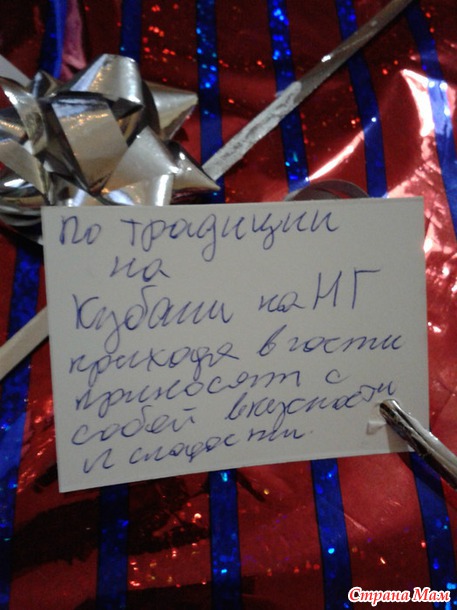 по традиции
на
Кубани на НГ
приходя в гости
приносят с
собой вкусности
и сладости.
Страна Мам